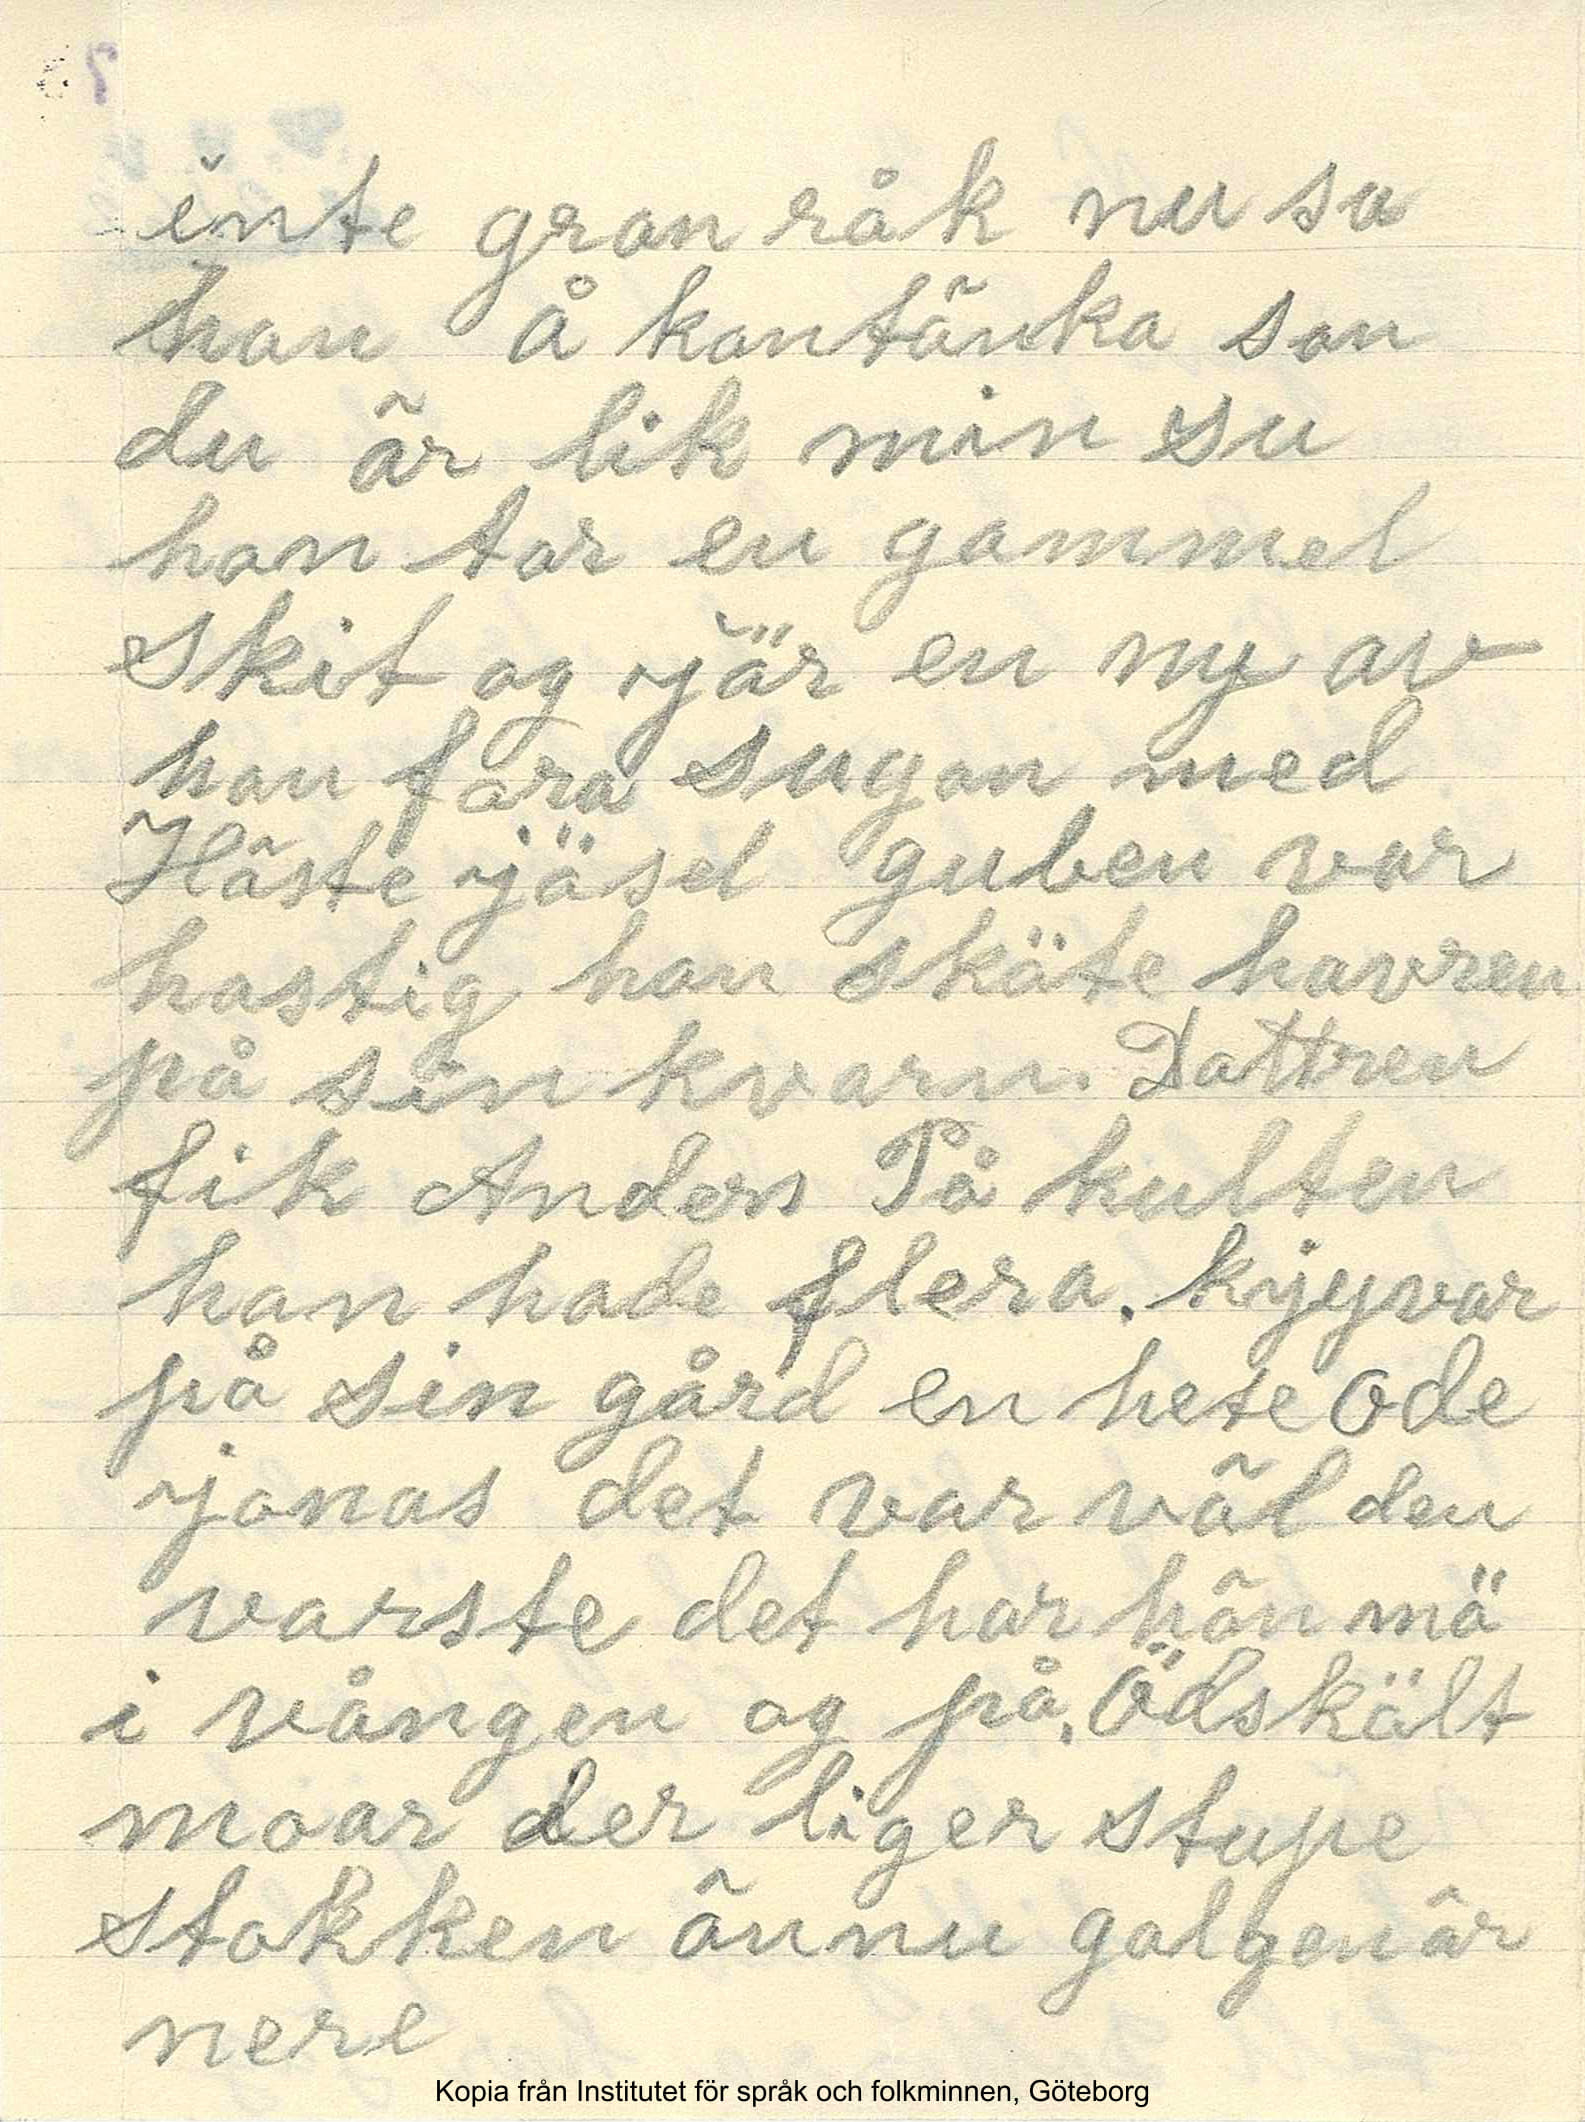 7
inte gran råk nu sa
han å kantänka son
du är lik min su
hon tar en gammel
skit og jär en ny av
han fora sugan med
Häste jäsel guben var
hastig han skäte havren
på sin kvarn. Dattren
fik Anders På kulten
han hade flera. kyyvar
på sin gård en hete Ode
jonas det var väl den
varste det har hän mä
i vången og på, Ödskält
moar der liger stupe
stokken ännu galgen är
nere
Kopia från Institutet för språk och folkminnen, Göteborg